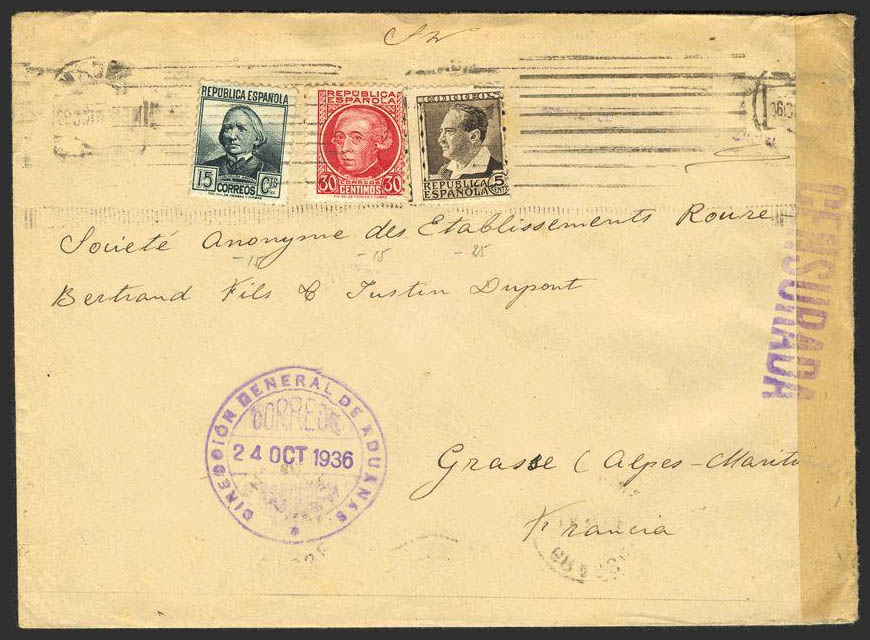 REPÚBLICA ESPAÑOLA
15 CORREOS CTS
REPÚBLICA
ESPAÑOLA
30 CORREOS 30
CENTIMOS
CORREOS
REPÚBLICA
ESPAÑOLA 5
CENTS
Societé Anonyme des Etablissements Roure
-15 -15 -25
Bertrand Fils & Justin Dupont
CENSURADA
CENSURADA
DIRECCIÓN GENERAL DE ADUANAS
CORREOS
24 OCT 1936
Grasse (Alpes-Mariti
Francia